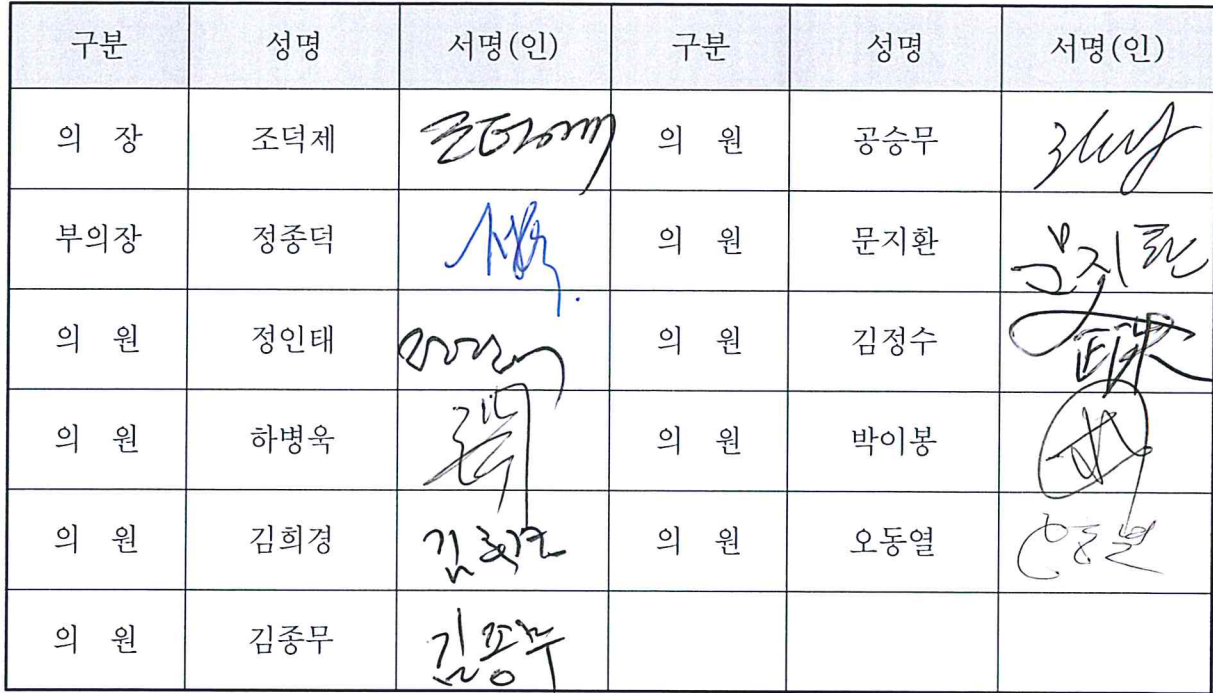 구분 성명 서명(인) 구분 성명 서명(인)
의 장 조덕제 의 원 공승무
부의장 정종덕 의 원 문지환 문지환
의 원 정인태 의 원 김정수
의 원 하병욱 의 원 박이봉
의 원 김희경 김희경 의 원 오동열
의 원 김종무 김종무